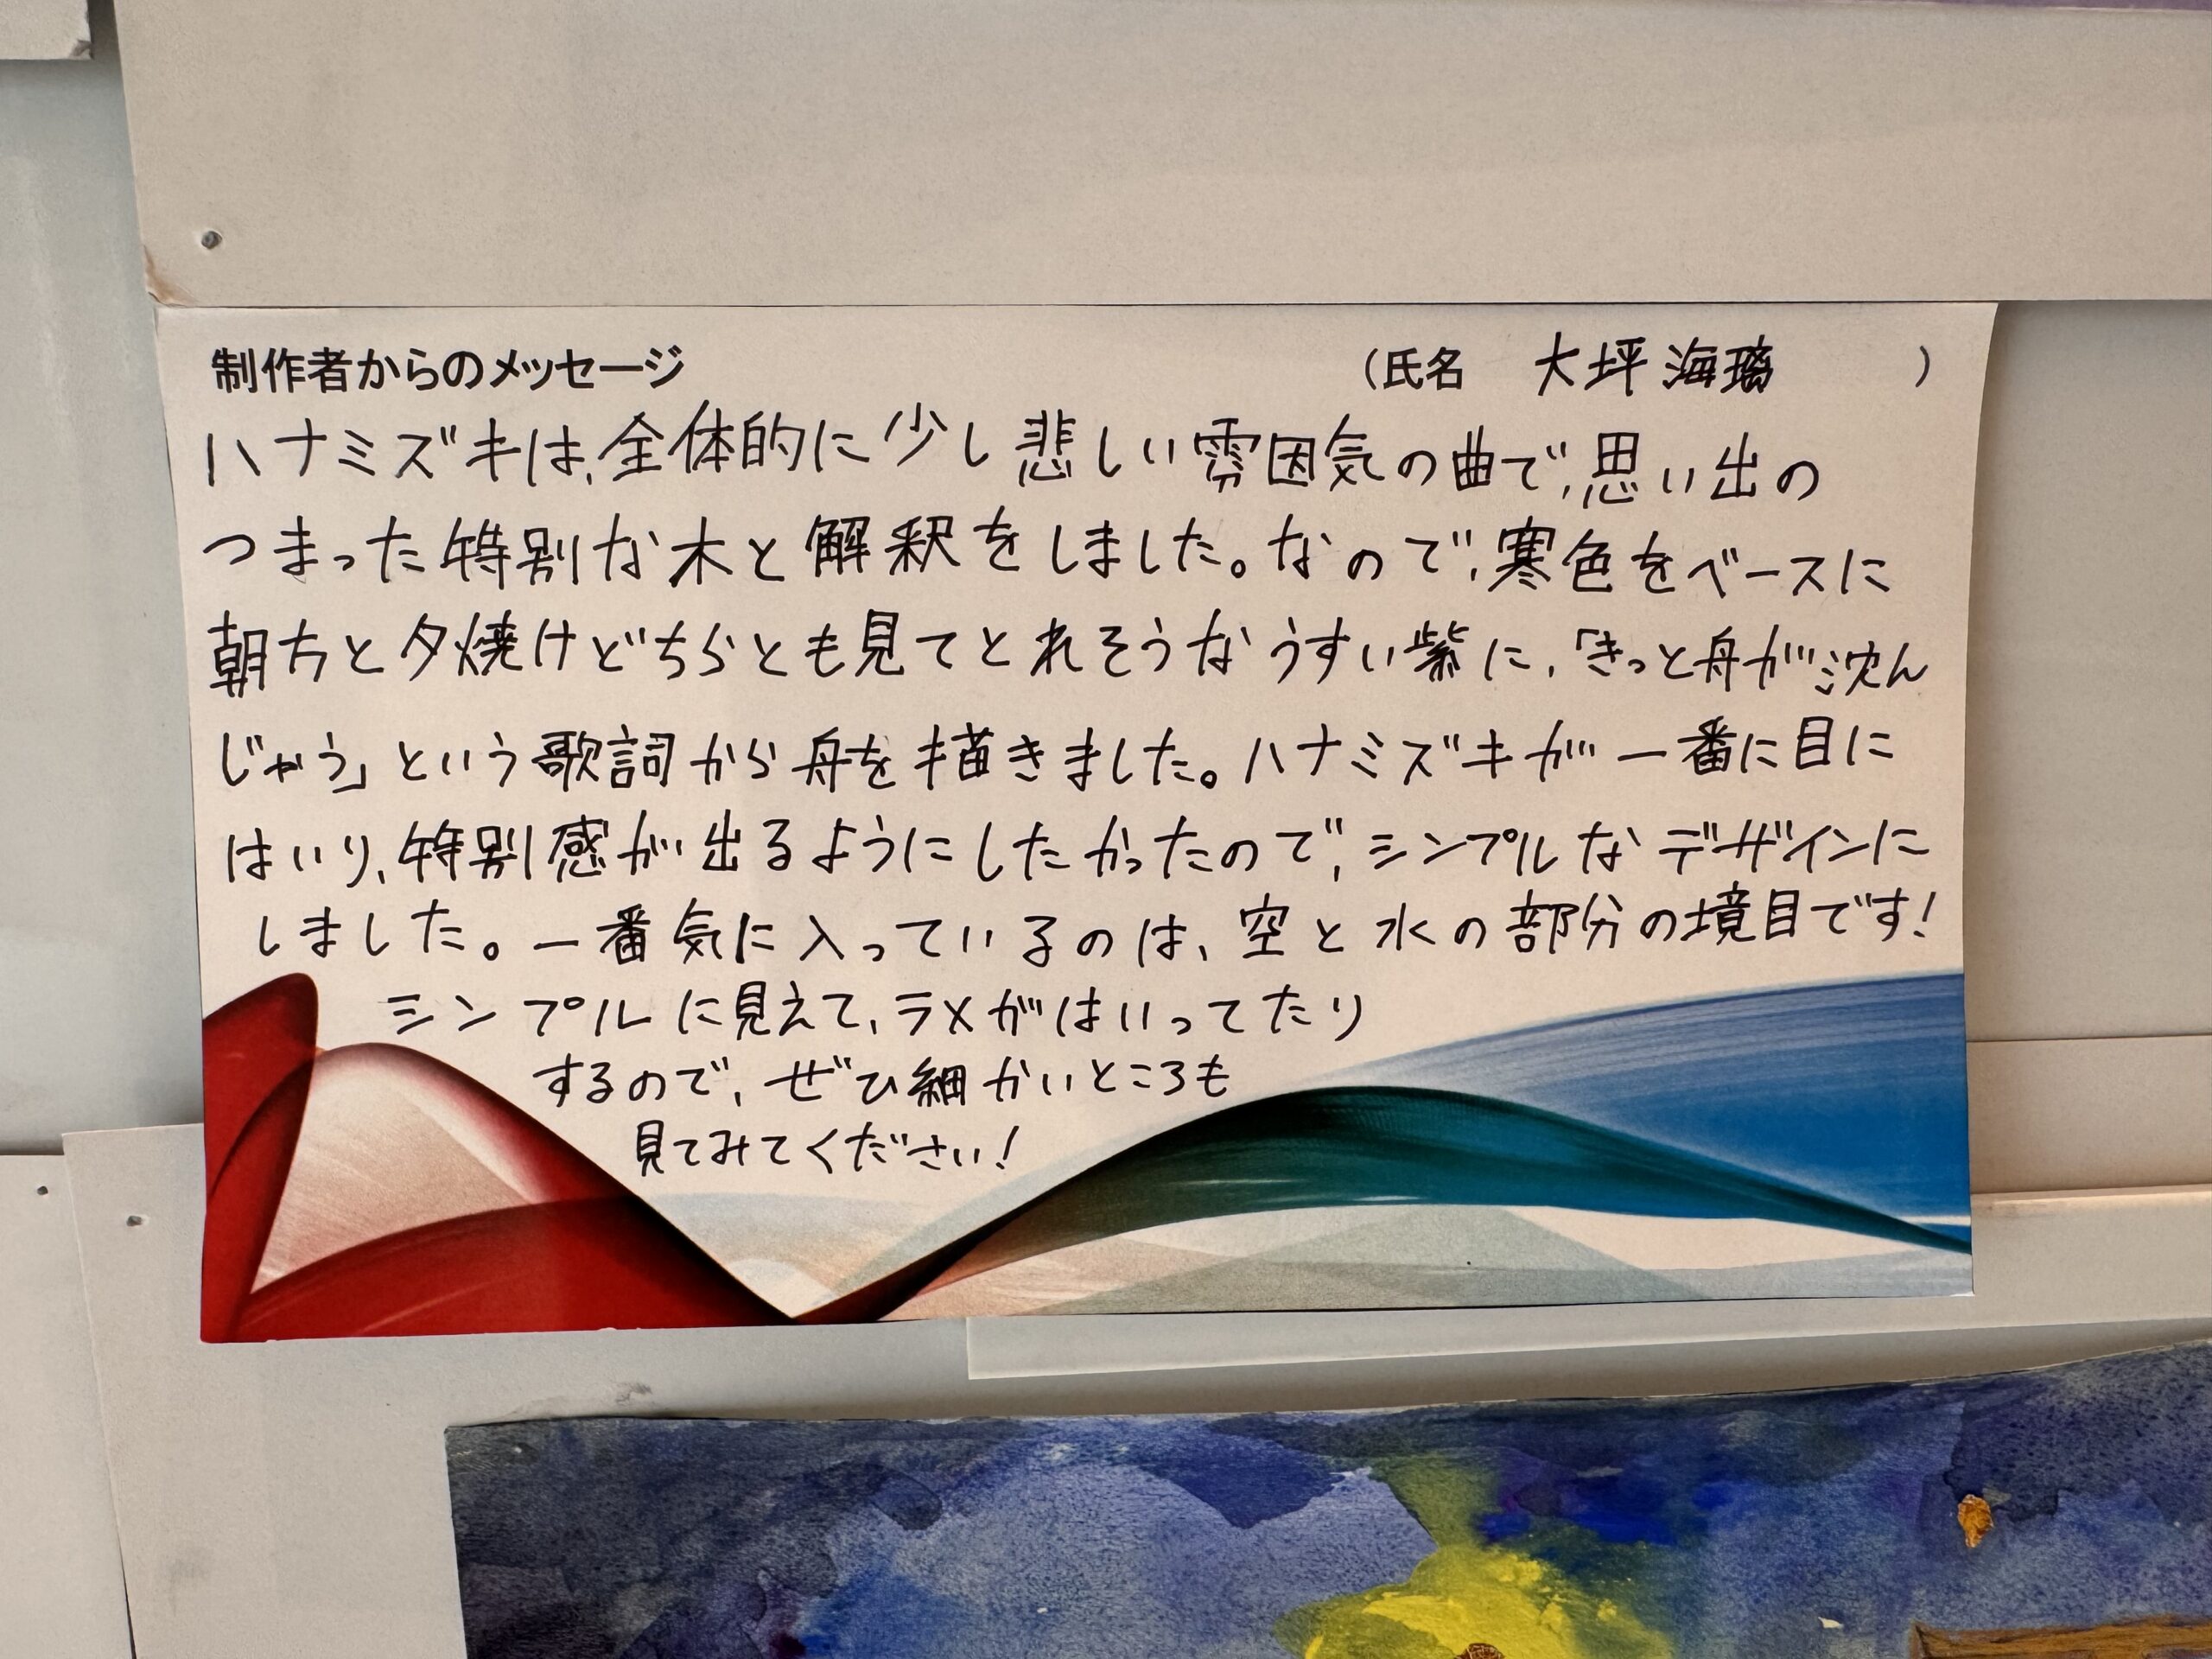 制作者からのメッセージ
（氏名 大坪海璃 ）
ハナミズキは、全体的に少し悲しい雰囲気の曲で、思い出の
つまった特別な木と解釈をしました。なので、寒色をベースに
朝方と夕焼けどちらとも見てとれそうなうすい紫に、「きっと舟が沈ん
じゃう」という歌詞から舟を描きました。ハナミズキが一番に目に
はいり、特別感が出るようにしたかったので、シンプルなデザインに
しました。一番気に入っているのは、空と水の部分の境目です!
シンプルに見えて、ラメがはいってたり
するので、ぜひ細かいところも
見てみてください!